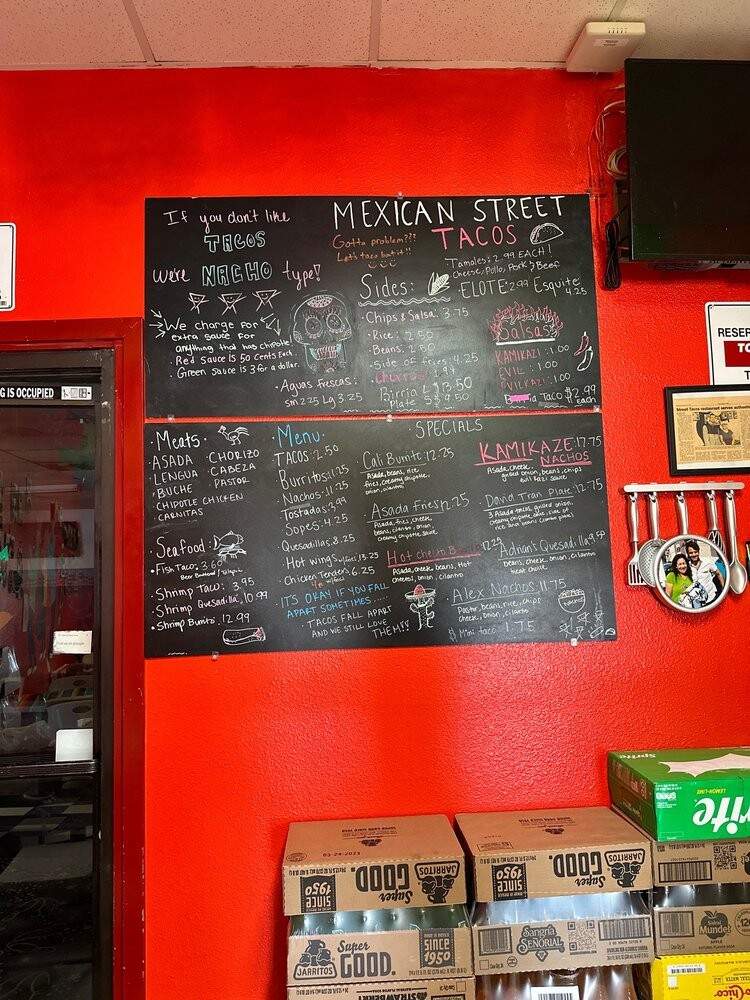 If you don't like
TACOS
we're NACHO type!
We charge for
extra sauce for
anything that has chipotle
Red Sauce is 50 cents each
Green Sauce is 3 for a dollar.
Aguas frescas:
sm 2.25 Lg 3.25
MEXICAN STREET
TACOS
Gotta problem???
Let's taco bout it!!
Tamales: 2.99 EACH!
Cheese, Pollo, Pork & Beef
Sides:
ELOTE 2.99 Esquite
4.25
Chips & Salsa: 3.75
Rice: 2.50
Beans: 2.50
Side of fries: 4.25
Birria L 13.50
Plate S 9.50
Salsas
KAMIKAZI: 1.00
EVIL: 1.00
EVILKAZI: 1.00
Taco $2.99
each
Meats:
ASADA CHORIZO
LENGUA CABEZA
BUCHE PASTOR
CHIPOTLE CHICKEN
CARNITAS
Seafood:
Fish Taco: 3.60
Shrimp Taco: 3.95
Shrimp Quesadilla: 10.99
Shrimp Burrito: 12.99
Menu
TACOS: 2.50
Burritos: 11.25
Nachos: 11.25
Tostadas: 3.99
Sopes: 4.25
Quesadillas: 8.25
Hot wings w/fries: 13.25
Chicken Tenders 6.25
w/fries
IT'S OKAY IF YOU FALL
APART SOMETIMES.....
TACOS FALL APART
AND WE STILL LOVE
THEM!!
SPECIALS
Cali Burrito: 12.75
Asada, beans, rice,
fries, creamy chipotle,
onion, cilantro
Asada Fries
Asada, fries, cheese,
beans, cilantro, onion,
creamy chipotle sauce
Hot cheeto B 12.25
Asada, cheese, beans, Hot
cheetos, onion, cilantro
Alex Nachos: 11.75
Pastor, beans, rice, chips
cheese, onion, cilantro
Mini taco 1.75
KAMIKAZE: 17.75
NACHOS
Asada, cheese,
grilled onion, beans, chips
evil kazi sauce
David Tran Plate: 12.75
3 Asada tacos, grilled onion,
creamy chipotle sauce, side of
rice and beans
Adrian's Quesadilla 9.50
beans, cheese, onion, cilantro
meat choice
IS OCCUPIED
RESER
TO
T
Sprite
LEMON-LIME
03-24-2023
Super
GOOD.
JARRITOS
SINCE
1950
Super
GOOD.
JARRITOS
SINCE
1950
JARRITOS
Super
GOOD.
SINCE
1950
STRAWBERRY
Sangría
SEÑORIAL
Sidral
Mundet
APPLE
Rico